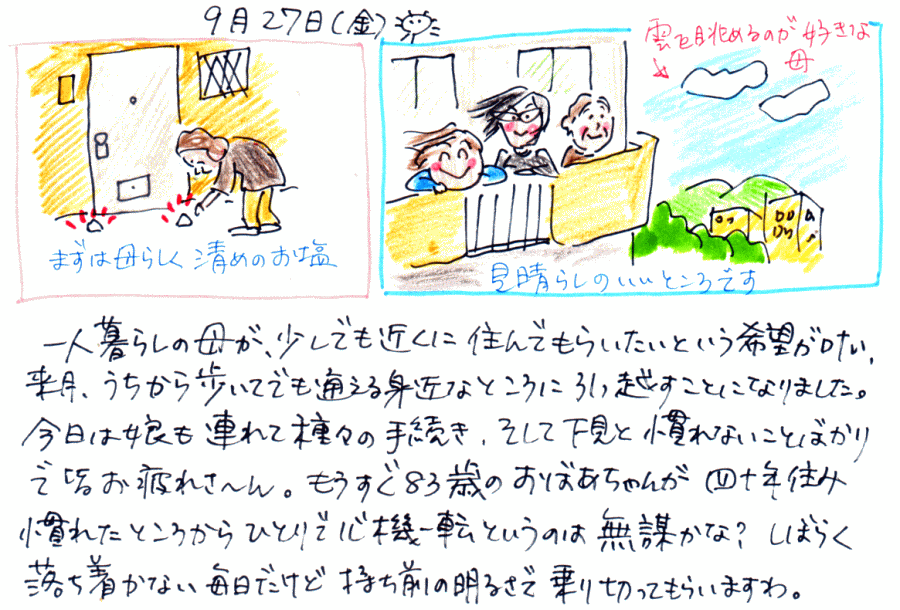 9月27日(金)
雲を眺めるのが好きな
母
まずは母らしく清めのお塩
見晴らしのいいところです
一人暮らしの母が、少しでも近くに住んでもらいたいという希望が叶い、
来月、うちから歩いてでも通える身近なところに引っ越すことになりました。
今日は娘も連れて種々の手続き、そして下見と慣れないことばかり
で皆お疲れさ〜ん。もうすぐ83歳のおばあちゃんが四十年住み
慣れたところからひとりで心機一転というのは無謀かな？しばらく
落ち着かない毎日だけど持ち前の明るさで乗り切ってもらいますわ。